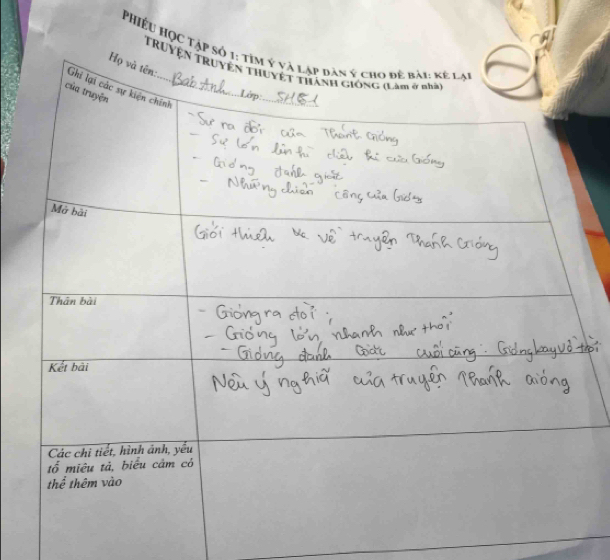 PHIẾU HỌC TẬP SỐ 1: TÌM Ý VÀ LẬP DÀN Ý CHO ĐỀ BÀI: KỂ LẠI
TRUYỆN TRUYỀN THUYẾT THÁNH GIÓNG (Làm ở nhà)
Họ và tên: Bảo Anh Lớp:
Ghi lại các sự kiện chính
của truyện
- Sự ra đời của Thánh Gióng
- Sự lớn lên kì diệu kì của Gióng
- Gióng đánh giặc
- Những chiến công của Gióng
Mở bài
Giới thiệu về truyện Thánh Gióng
Thân bài
- Gióng ra đời
- Gióng lớn nhanh như thổi
- Gióng đánh Giặc cuối cùng: Gióng bay về trời
Kết bài
Nêu ý nghĩa của truyện Thánh Gióng
Các chi tiết, hình ảnh, yếu
tố miêu tả, biểu cảm có
thể thêm vào